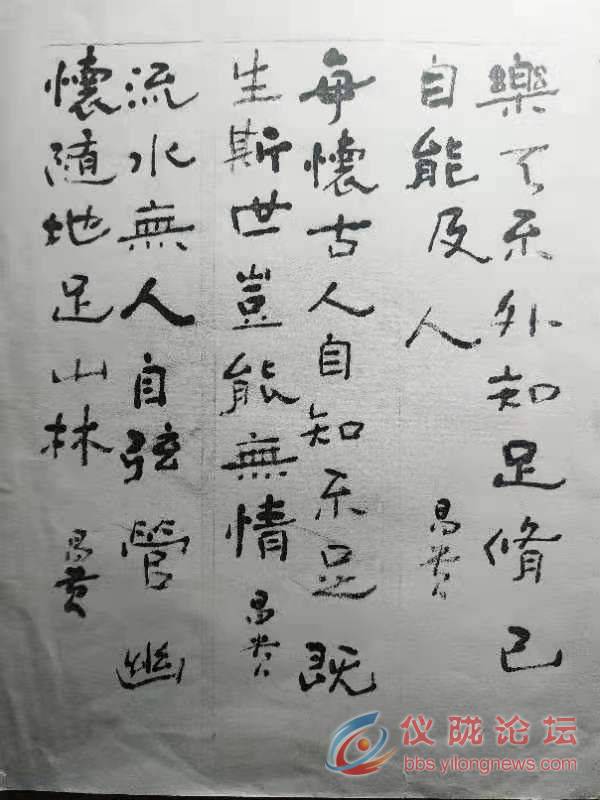 樂天不外知足脩己
自能及人
昌
每懷古人自知不足既
生斯世豈能無情
昌
流水無人自弦管幽
懷隨地足山林
昌
仪陇论坛
bbs.yilongnews.com